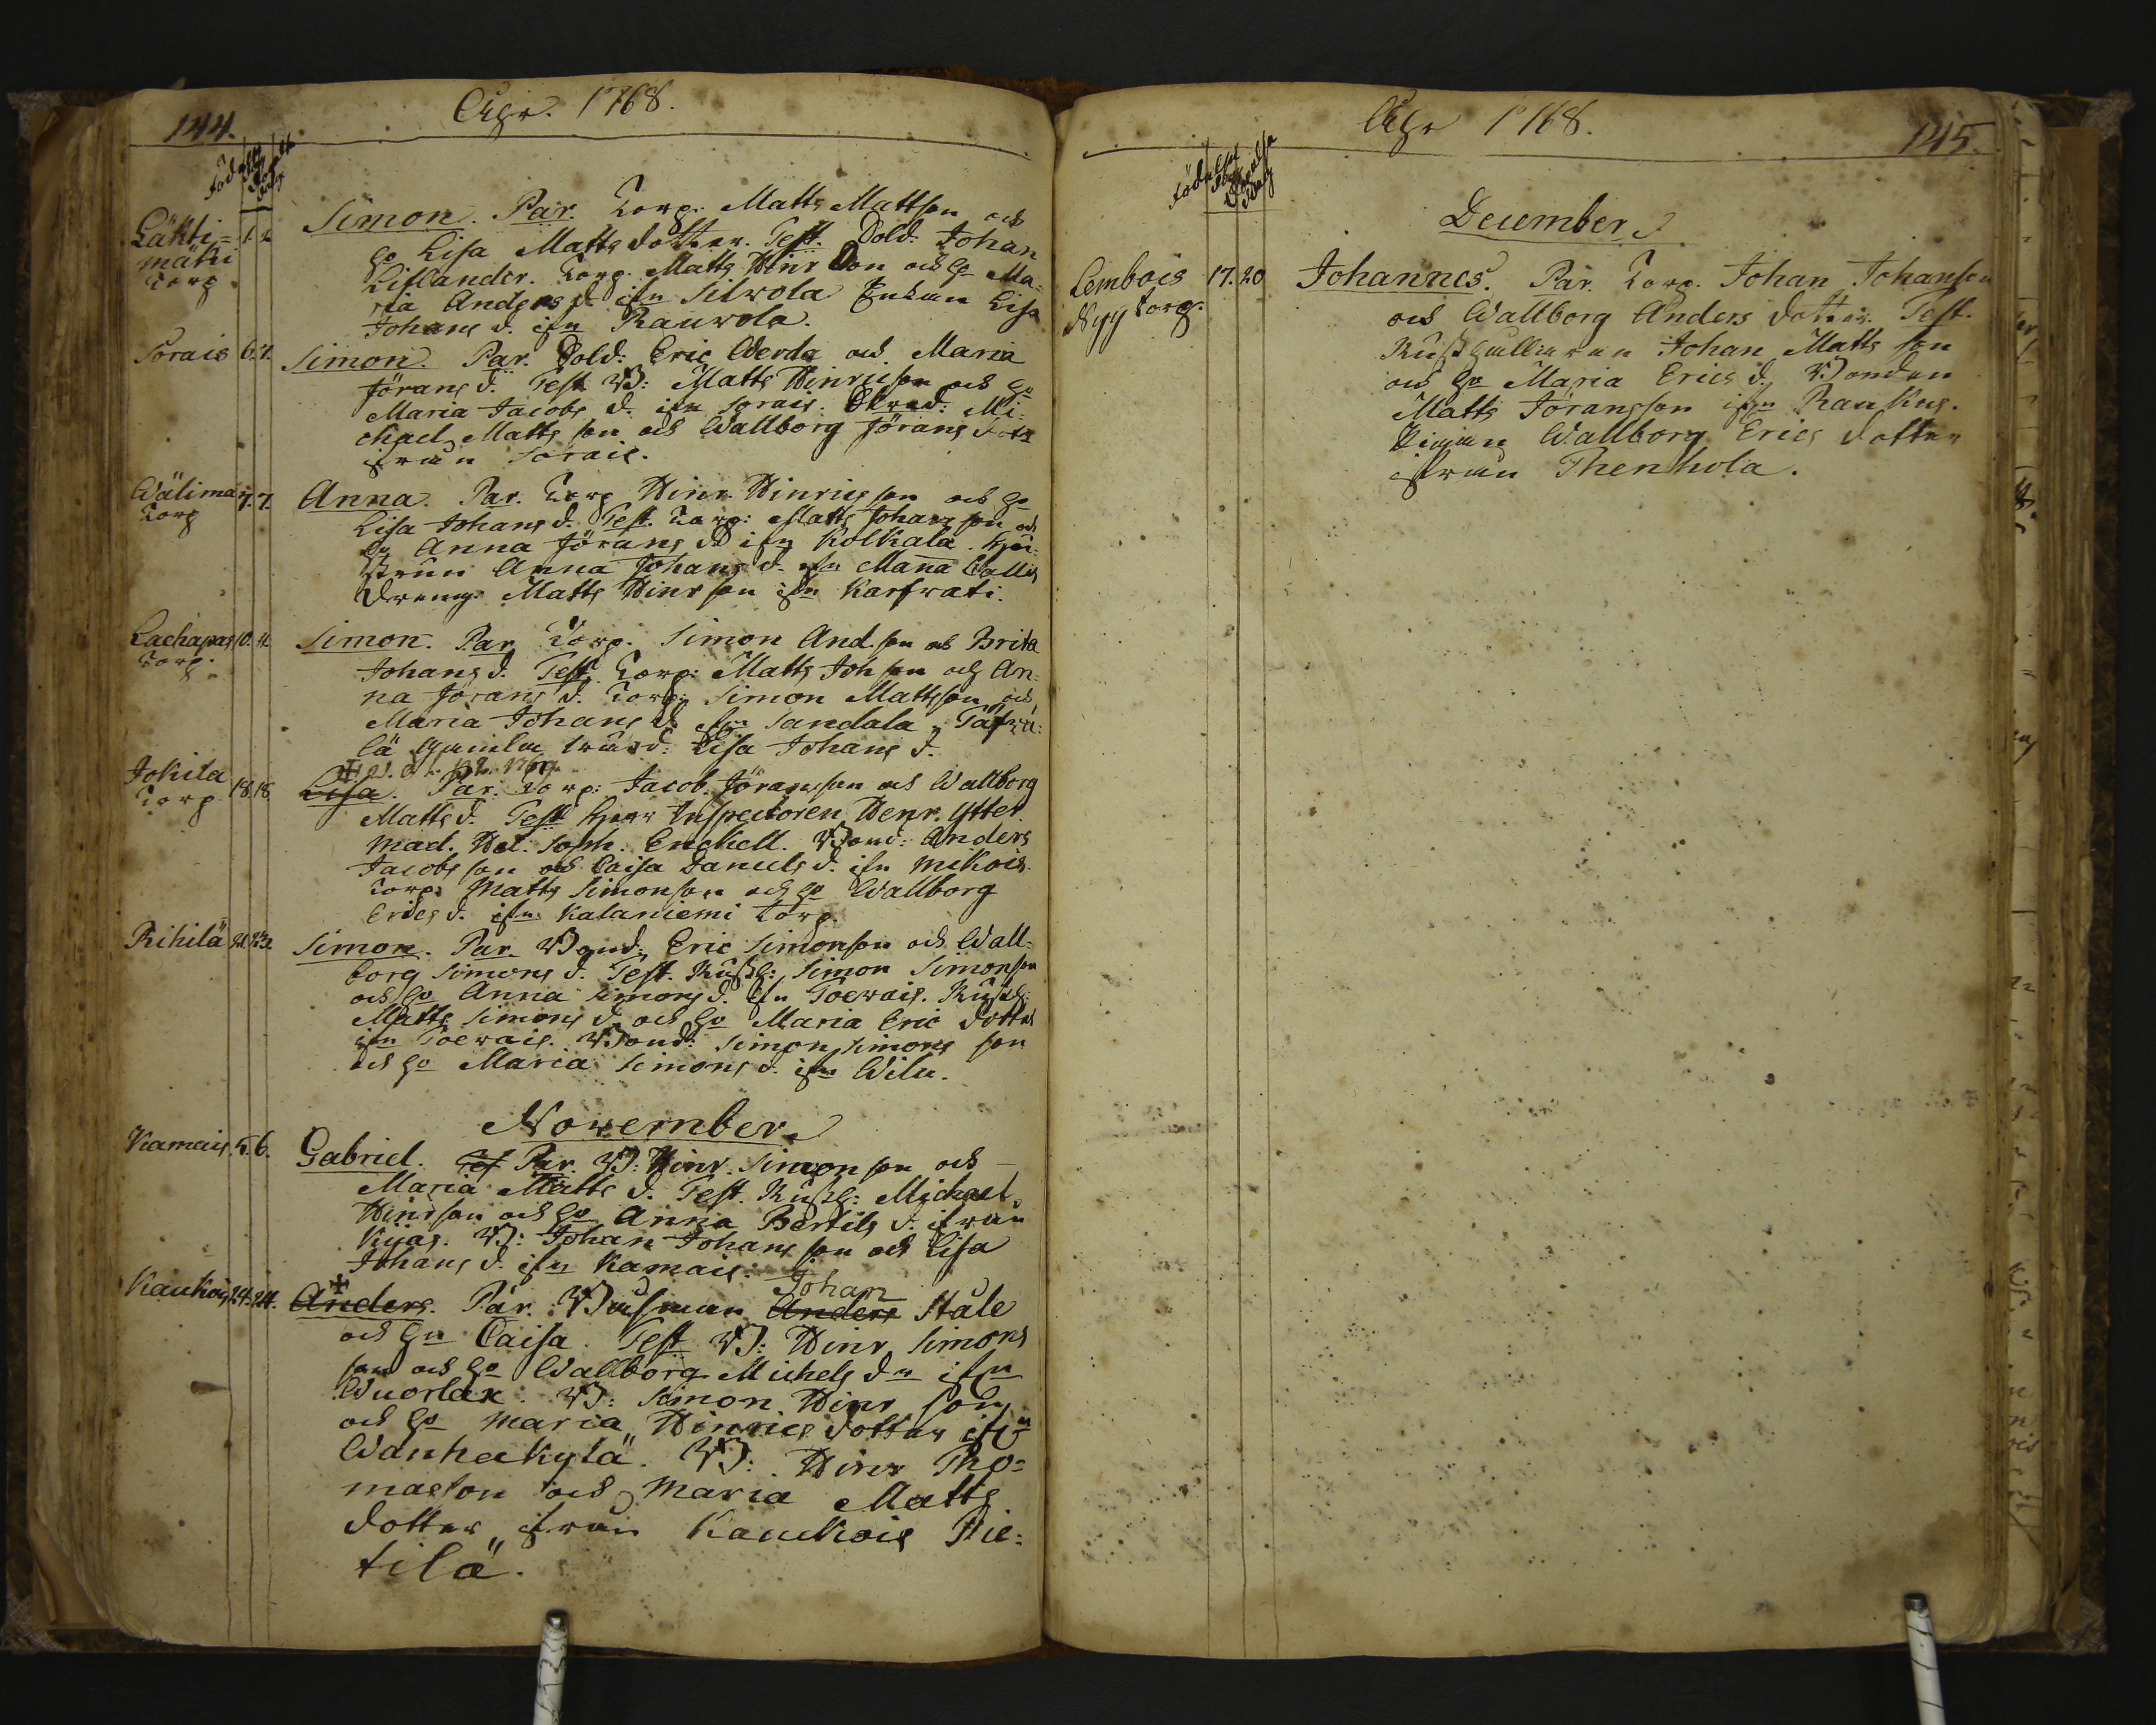 144.
1768.
Simon. Par. Torp: Matts Mattson och
Lisa Matts dotter. Test. Sold: Johan
Liflander. Torp: Matts Hinr Son och Ma-
ria Anders d. Silwola Enkan Lisa
Johans d. Rauwola.
Läkti-
mäki
Torp
1. 2
Sorais 6. 7.
Simon. Par. Sold: Eric Werda och Maria
Jörans d. Test. B: Matts Hinricson och
Maria Jacobs d. Sorais. Mi-
chael Matts son och Wallborg Jörans dott
ifrån Sorais.
Wälimä
Torp
7. 7.
Anna. Par. Torp Hinr. Hinrics son och
Lisa Johans d. Test. Torp: Matts Johans son och
Anna Jörans d. Kolkala.
Anna Johans d. Manna
Dreng: Matts Hinr son Karfwati.
Torp.
10. 11.
Simon. Par. Torp. Simon And. son och Brita
Johans d. Test. Torp: Matts Joh son och An-
na Jörans d. Torp: Simon Mattsson och
Maria Johans d. Sandala,
lä Lisa Johans d.
Jokila
Torp
18. 18
Lisa. Par. Torp: Jacob Jöransson och Wallborg
Matts d. Test. Herr Inspectoren Henr. Ytter
Mad. Hel. Soph. Enckell. Bond: Anders
Jacobs son och Caisa Daniels d. Mikois
Torp: Matts Simonson och Wallborg
Erics d. Kalaniemi Torp.
Rihilä
Simon. Par. Bond: Eric Simonson och Wall-
borg Simons d. Test. Rusth: Simon Simonson
och Anna Simons d. Toewais. Rusth:
Matts Simons d. och Maria Eric dotter
Toewais. Bond: Simon Simons son
och Maria Simons d. Wilu.
November
Kamais. 5. 6.
Gabriel. Par. B: Hinr. Simon son och
Maria Matts d. Test. Rusth: Michael
Hinrson och Anna Bertils d. ifrån
Kijas. B: Johan Johans son och Lisa
Johans d. Kamais.
Johan
Kaukois 24. 24.
Anders. Par. Busman Anders Ståle
och Caisa. Test B: Hinr Simons
son och Wallborg Michels
Wuorlax. B: Simon Hinr son
och Maria Hinrics dotter
Wanhakylä. B: Hinr Tho-
masson och Maria Matts
dotter ifrån Kauckois Pie-
tilä.
1768.
145.
December
Lembois
Nyy torp.
17. 20
Johannes. Par. Torp. Johan Johanson
och Wallborg Anders dotter. Test.
Rusthållaren Johan Matts son
och Maria Erics d. Bonden
Matts Jöransson Raukus.
Pigan Wallborg Erics dotter
ifrån Thenhola.